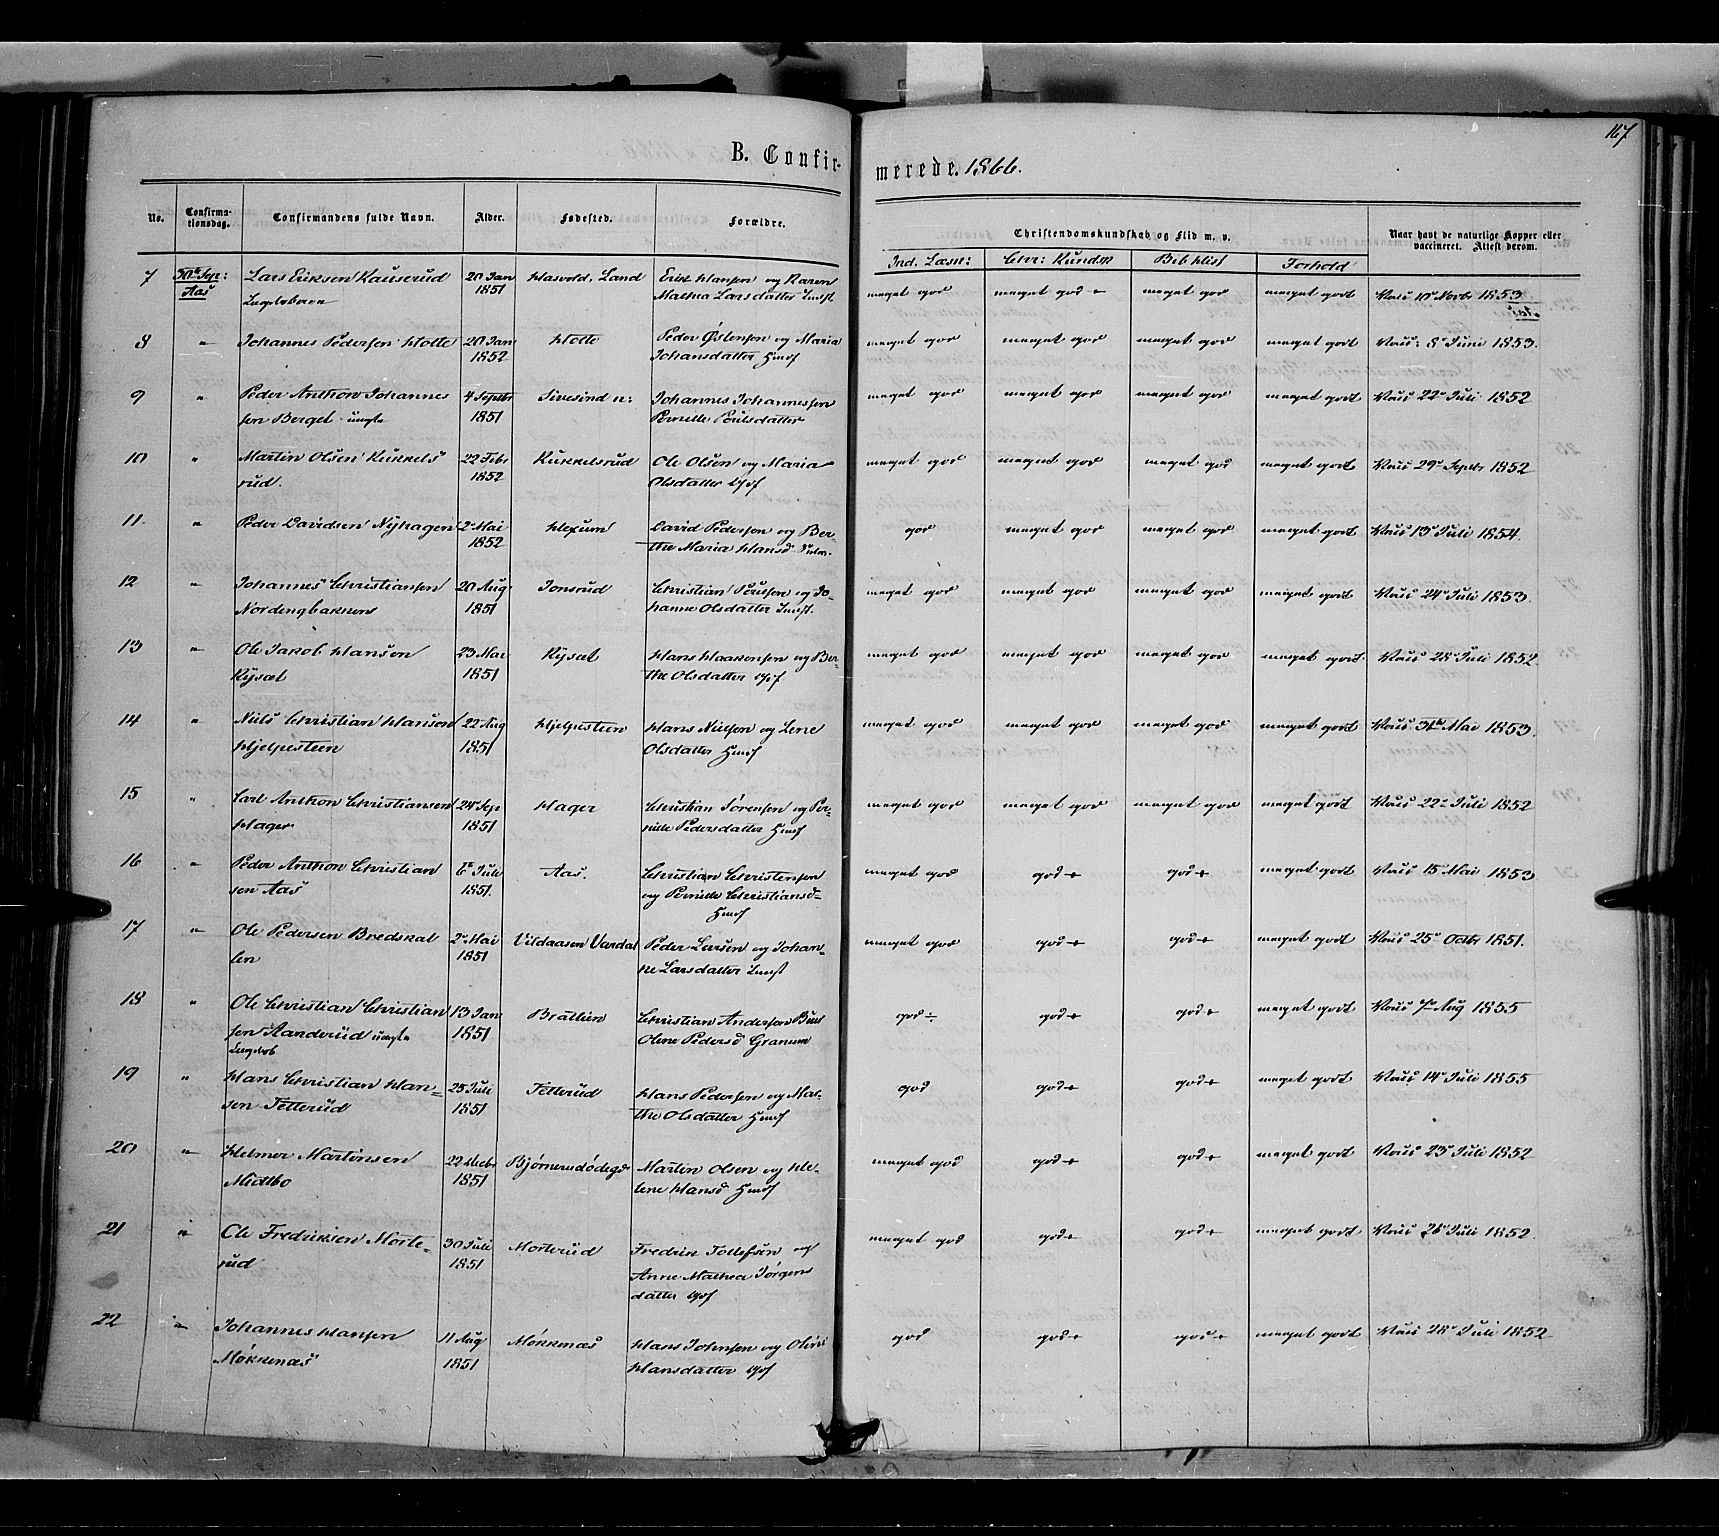 167
B. Confirmerede. 1866.
No. Confirmationsdag. Confirmandens fulde Navn. Alder. Fødested. Forældre. Christendomskundskab og Flid m. v. Naar havt de naturlige Kopper eller vaccineret. Attest derom.
Ind. Læsn: Chr: Kundsk Bibhist Forhold
7 30te Sep: Lars Eriksen Kauserud 20 Jan Hasvold, Land Erik Hansen og Karen meget god meget god + meget god meget godt Vacc 10 Novbr 1853
Aas 1851 Mathea Larsdatter Inst Aas
8 " Johannes Pedersen Hotte 20 Jan Hotte Peder Østensen og Maria meget god meget god meget god meget godt Vacc: 8 Juni 1853.
1852 Johansdatter Husf
9 " Peder Anthon Johannes 4 Septbr Sivesind n: Johannes Johannessen meget god meget god meget god meget godt Vacc 22 Juli 1852
sen Berget uægte 1851 Pernille Poulsdatter
10 " Martin Olsen Kukkels 22 Febr Kukkelsrud Ole Olsen og Maria meget god meget god meget god meget godt Vacc 29 Septr 1852
rud. 1852 Olsdatter
11. " Peder Davidsen Nyhagen 2 Mai Hexum David Pedersen og Ber- god meget god meget god meget godt Vacc 13 Juli 1854.
1852 the Maria Hansd
12 " Johannes Christiansen 20 Aug Jonsrud Christian Poulsen og Jo- meget god meget god meget god meget godt Vacc 24 Juli 1853.
Nordengbakken 1851 hanne Olsdatter Inst.
13 " Ole Jakob Hansen 23 Mai Rysæt Hans Haakensen og Ber- meget god meget god meget god meget godt. Vacc 28 Juli 1852.
Rysæt 1851 the Olsdatter
14 " Niels Christian Hansen 22 Aug Hjelpesteen Hans Nielsen og Lene meget god meget god meget god meget godt Vacc 31te Mai 1853.
Hjelpesteen 1851 Olsdatter Husf
15 " Carl Anthon Christiansen 24 Sep Hager Christian Sørensen og Per- meget god meget god meget god meget godt Vacc 22 Juli 1852
Hager 1851 nille Pedersdatter Husf
16 " Peder Anthon Christian 6te Juli Aas. Christian Christensen meget god god + god + meget godt Vacc 15 Mai 1853
sen Aas 1851. og Pernille Christiansd=
Husf
17 " Ole Pedersen Bredskal 2 Mai Vildaasen Vardal Peder Larsen og Johan- meget god god + god + meget godt Vacc 25 Octbr 1851.
len 1851 ne Larsdatter Inst
18 " Ole Christian Christian 13 Jan Brattlien Christian Andersen god ÷ god + god + meget godt Vacc 7 Aug 1855
sen Sanderud uægte 1851 Oline Pedersd Granum
19 " Hans Christian Han= 25 Juli Fetterud Hans Pedersen og Mar- god god + god + meget godt Vacc 14 Juli 1855
sen Fetterud 1851 the Olsdatter Husf
20 " Helmer Martinsen 22 Decbr Martin Olsen og He- meget god god + god + meget godt Vacc 23 Juli 1852
Midtbo 1851 lene Hansd Husf
21 " Ole Fredriksen Morte- 30 Juli Morterud Fredrik Tollefsen og meget god god + god + meget godt Vacc 26 Juli 1852.
rud 1851 Anne Mathea Jørgens
datter
22 " Johannes Hansen 11 Aug Møkkenæs Hans Johnsen og Oline god god + god + meget godt Vacc 28 Juli 1852
Møkkenæs 1851 Hansdatter